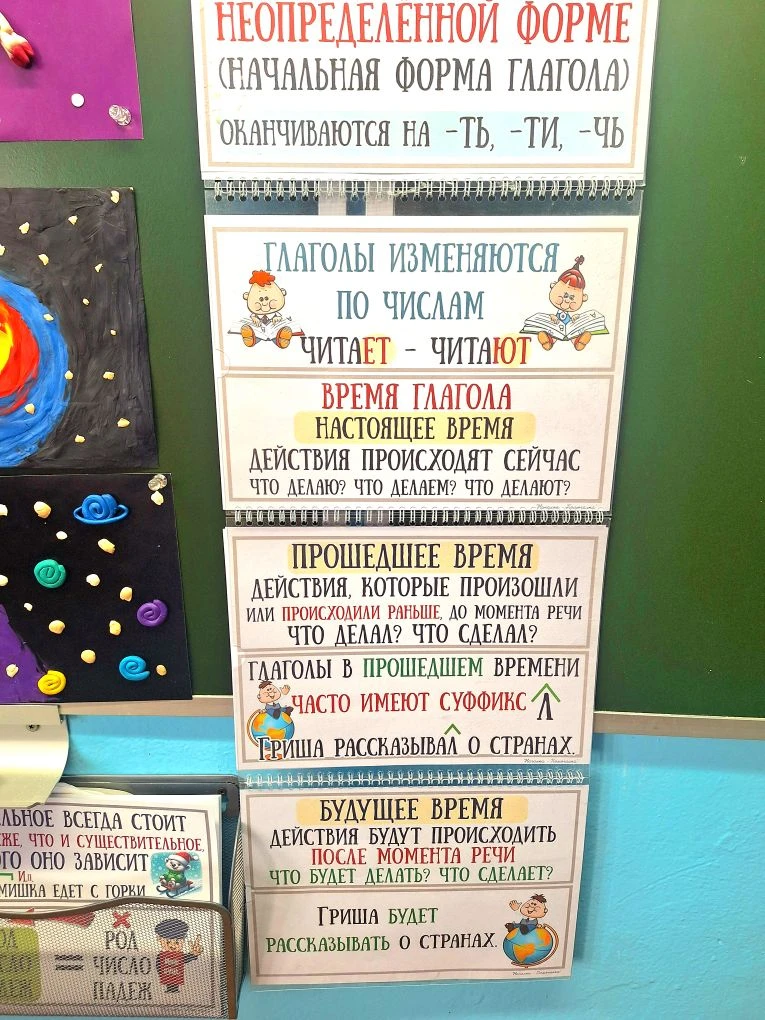 НЕОПРЕДЕЛЁННОЙ ФОРМЕ
(НАЧАЛЬНАЯ ФОРМА ГЛАГОЛА)
ОКАНЧИВАЮТСЯ НА -ТЬ, -ТИ, -ЧЬ
ГЛАГОЛЫ ИЗМЕНЯЮТСЯ
ПО ЧИСЛАМ
ЧИТАЕТ - ЧИТАЮТ
ВРЕМЯ ГЛАГОЛА
НАСТОЯЩЕЕ ВРЕМЯ
ДЕЙСТВИЯ ПРОИСХОДЯТ СЕЙЧАС
ЧТО ДЕЛАЮ? ЧТО ДЕЛАЕМ? ЧТО ДЕЛАЮТ?
ПРОШЕДШЕЕ ВРЕМЯ
ДЕЙСТВИЯ, КОТОРЫЕ ПРОИЗОШЛИ
ИЛИ ПРОИСХОДИЛИ РАНЬШЕ, ДО МОМЕНТА РЕЧИ
ЧТО ДЕЛАЛ? ЧТО СДЕЛАЛ?
ГЛАГОЛЫ В ПРОШЕДШЕМ ВРЕМЕНИ
ЧАСТО ИМЕЮТ СУФФИКС Л
ГРИША РАССКАЗЫВАЛ О СТРАНАХ.
БУДУЩЕЕ ВРЕМЯ
ДЕЙСТВИЯ БУДУТ ПРОИСХОДИТЬ
ПОСЛЕ МОМЕНТА РЕЧИ
ЧТО БУДЕТ ДЕЛАТЬ? ЧТО СДЕЛАЕТ?
ГРИША БУДЕТ
РАССКАЗЫВАТЬ О СТРАНАХ.
ЛЬНОЕ ВСЕГДА СТОИТ
ЖЕ, ЧТО И СУЩЕСТВИТЕЛЬНОЕ,
ОГО ОНО ЗАВИСИТ
И.п.
МИШКА ЕДЕТ С ГОРКИ
РОД
ЧИСЛО = ЧИСЛО
ПАДЕЖ